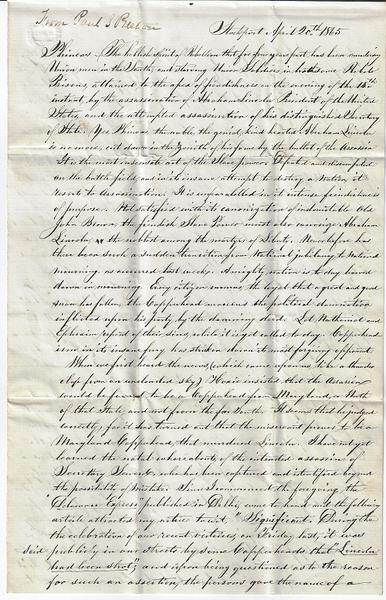 From Paul S. Preston
Stockport April 20th 1865
Phineas. The hellish spirit of Rebellion that for four years past has been murdering
Union men in the South, and starving Union Soldiers in loathsome Rebel
Prisons, attained to the apex of fiendishness on the evening of the 14th
instant, by the assassination of Abraham Lincoln President of the United
States, and the attempted assassination of his distinguished Secretary
of State. Yes Phineas the noble, the genial, kind hearted Abraham Lincoln
is no more, cut down in the Zenith of his fame by the bullet of the Assassin
It is the most insensate act of the Slave power. Defeated and discomfited
on the battle field, and in its insane attempt to destroy a Nation, it
resorts to Assassination. It is unparalleled in it intense fiendishness
of purpose. Not satisfied with its canonization of indomitable Old
John Brown, the fiendish Slave Power must also canonize Abraham
Lincoln, the noblest among the martyrs of State. Never before has
there been such a sudden transition from National jubilancy to National
mourning, as occurred last week. A mighty nation is to day bowed
down in mourning. Every citizen mourns, the loyal that a great and good
man has fallen, the Copperhead mourns the political damnation
inflicted upon his party, by the damning deed. Let Nathaniel and
Ephraim repent of their sins, while it is yet called to day. Copperhead
ism in its insane fury has stricken down its most forgiving opponent
When we first heard the news, (which came upon us like a thunder
clap from an unclouded sky,) I insisted that the Assassin
would be found to be a Copperhead from Maryland, or North
of that State, and not from the far South. It seems that he judged
correctly, for it has turned out that the miscreant proves to be a
Maryland Copperhead, that murdered Lincoln. I have not yet
learned the whereabouts of the intended assassin of
Secretary Seward, who has been captured and identified beyond
the possibility of mistake. Since I commenced the foregoing the
"Delaware Express" published in Delhi, came to hand and the following
article attracted my notice to wit, "Significant. During the
the celebration of our recent victories, on Friday last, it was
said publicly in our streets by some Copperheads, that Lincoln
had been shot; and upon being questioned as to the reason
for such an assertion, the persons gave the name of a